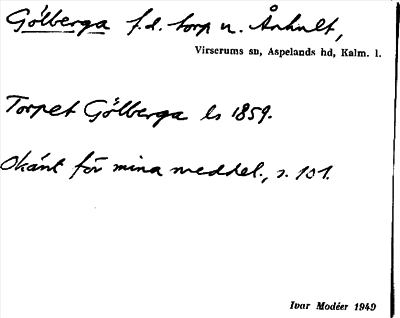 Gölberga f.d. torp u. Århult,
Virserums sn, Aspelands hd, Kalm. l.
Torpet Gölberga ls 1859.
Okänt för mina meddel., s. 101.
Ivar Modéer 1949